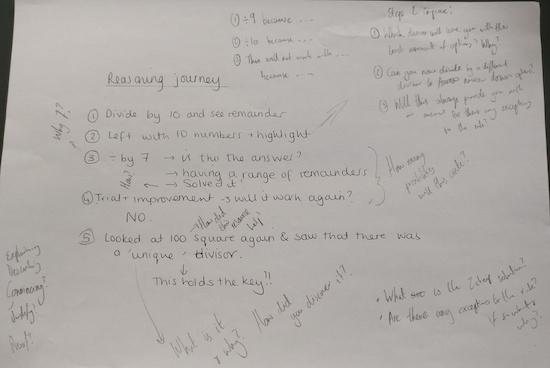 ① ÷9 because ...
② ÷10 because ...
③ This will not work with ...
because ...
Steps & Inquiry:
① Which divisor will leave you with the
least amount of options? Why?
② Can you now divide by a different
divisor to
③ Will this always provide you with
an answer? Are there any exceptions
to the rule?
Reasoning journey
Why?
① Divide by 10 and see remainder
② Left with 10 numbers + highlight
③ ÷ by 7 → is this the answer?
→ having a range of remainders
How? ← → Solved it!
④ Trial + improvement → will it work again?
NO.
→ How did
this
help?
How many
problems
will this
⑤ Looked at 100 square again & saw that there was
a 'unique' divisor.
↓
This holds the key!!
Explaining
Convincing?
Justify?
Proof?
What is it
& why?
How did
you discover it?
• What is the 2 step solution?
• Are there any exceptions to the rule?
If so what &
why?